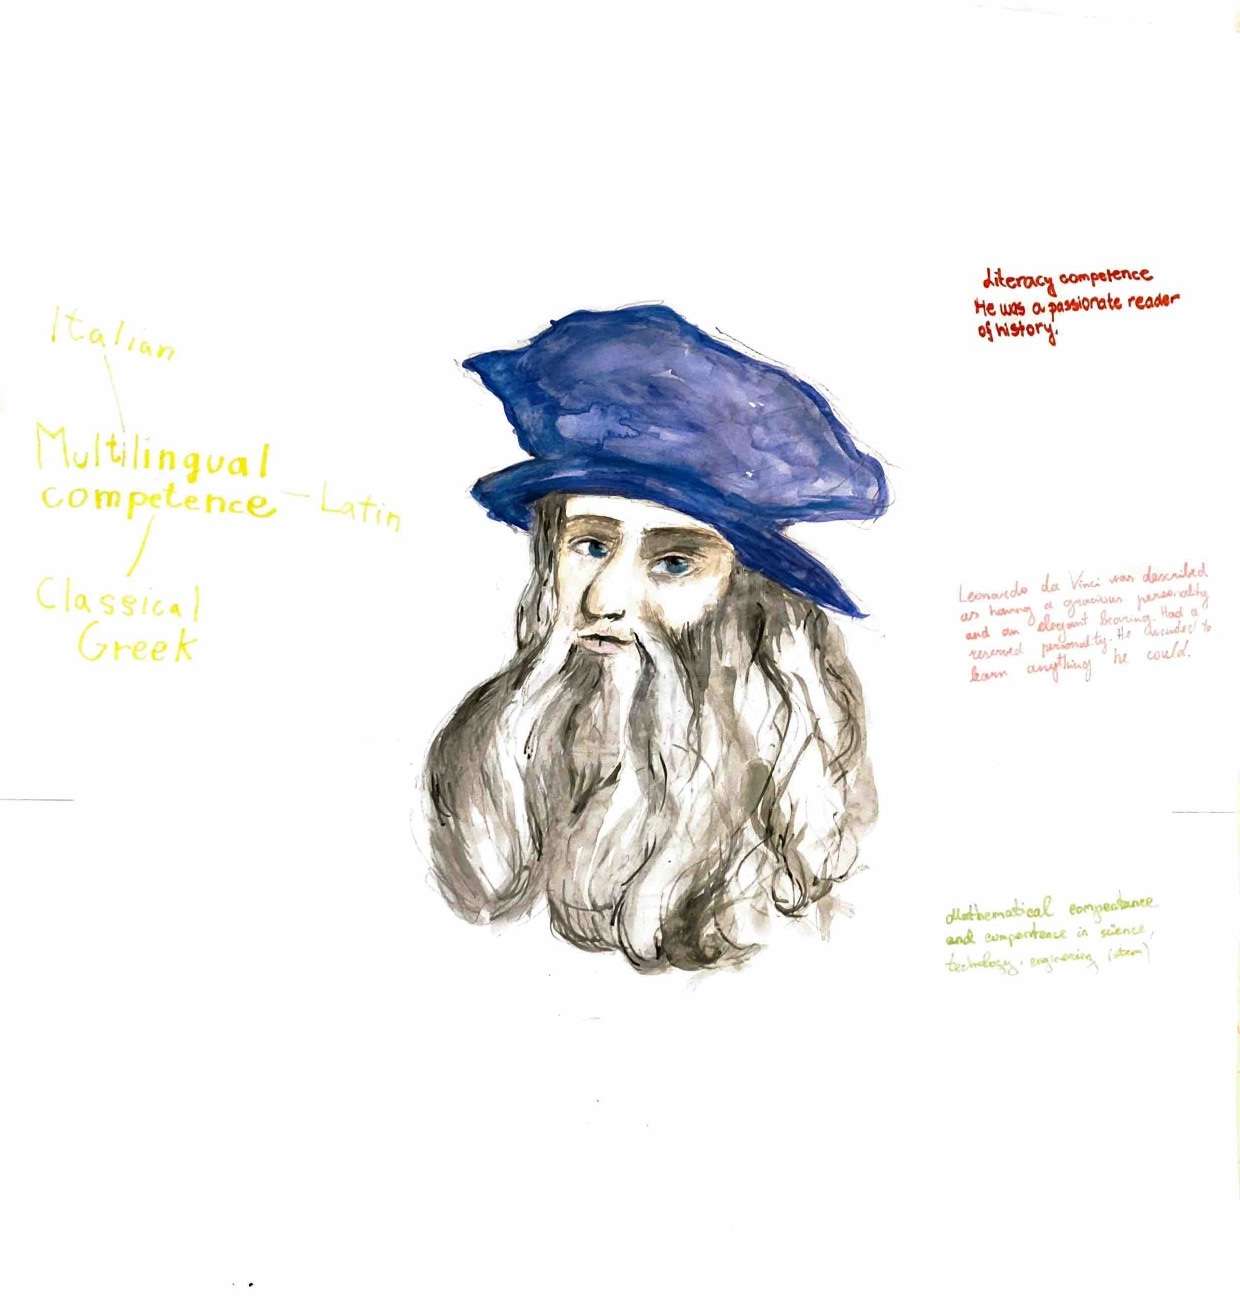 Italian
Multilingual
competence
Latin
Classical
Greek
Literacy competence
He was a passionate reader
of history.
Leonardo da Vinci was described
as having a gracious personality
and an elegant bearing. Had a
reserved personality. He to
learn anything he could.
Mathematical
and in science,
technology, engineering (stem)